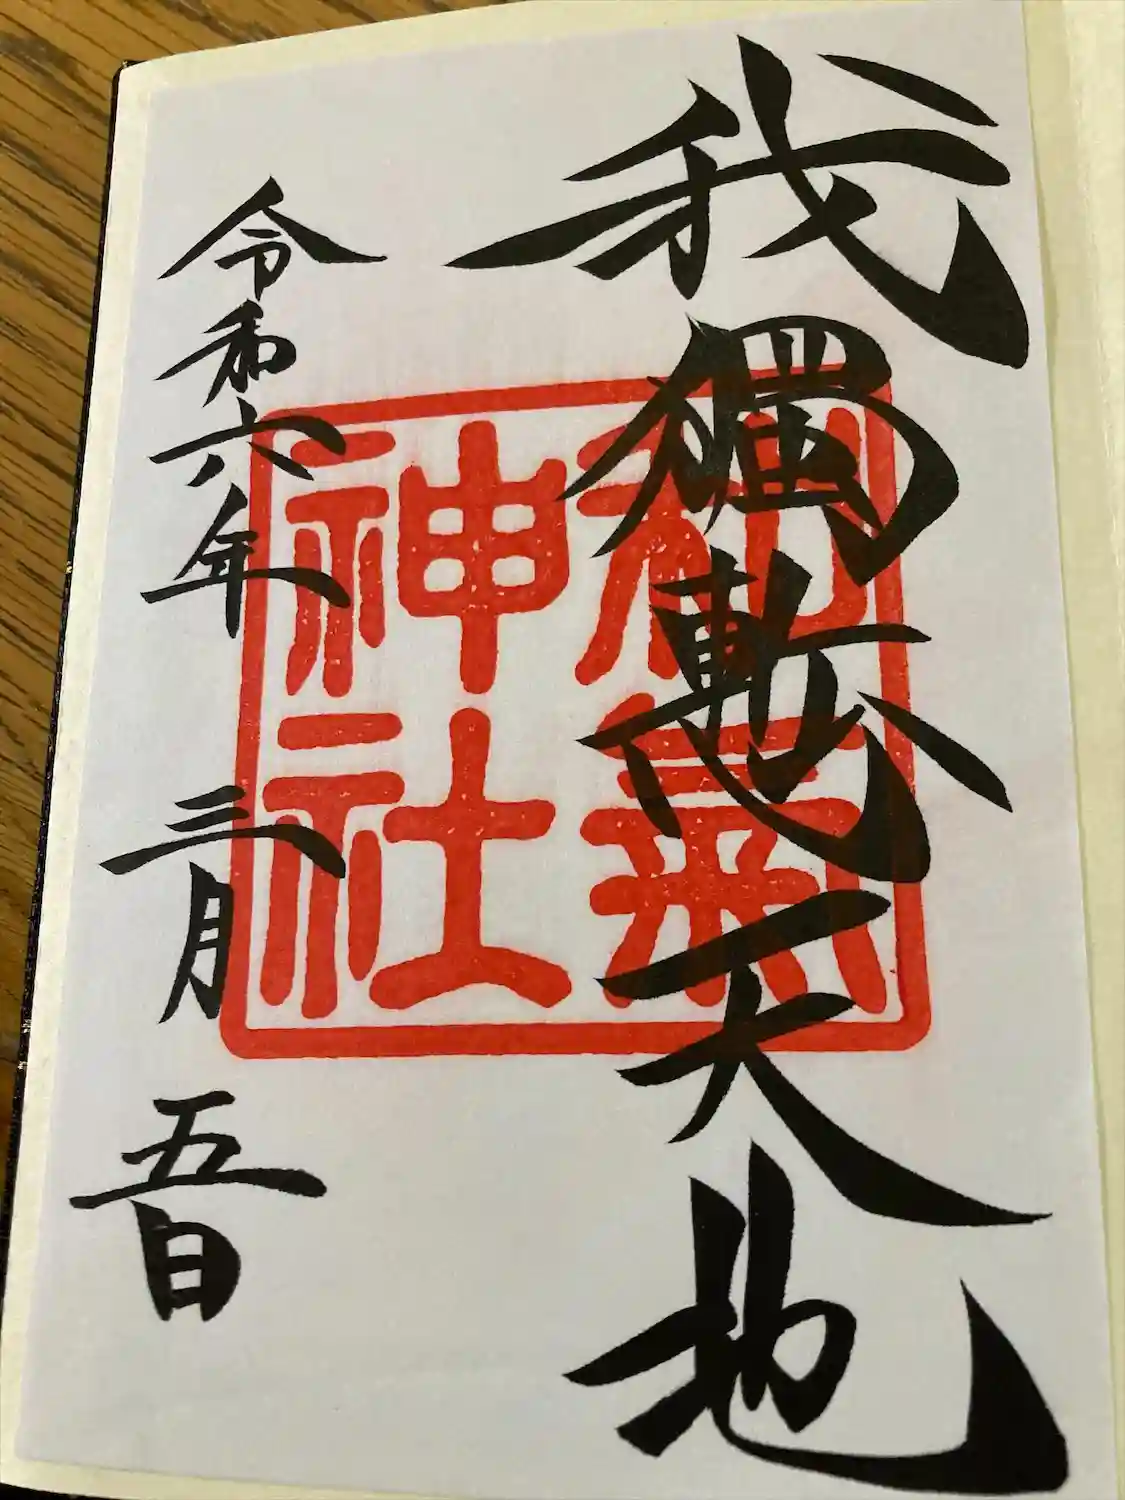 我獨慙天地
和氣神社
令和六年三月五日